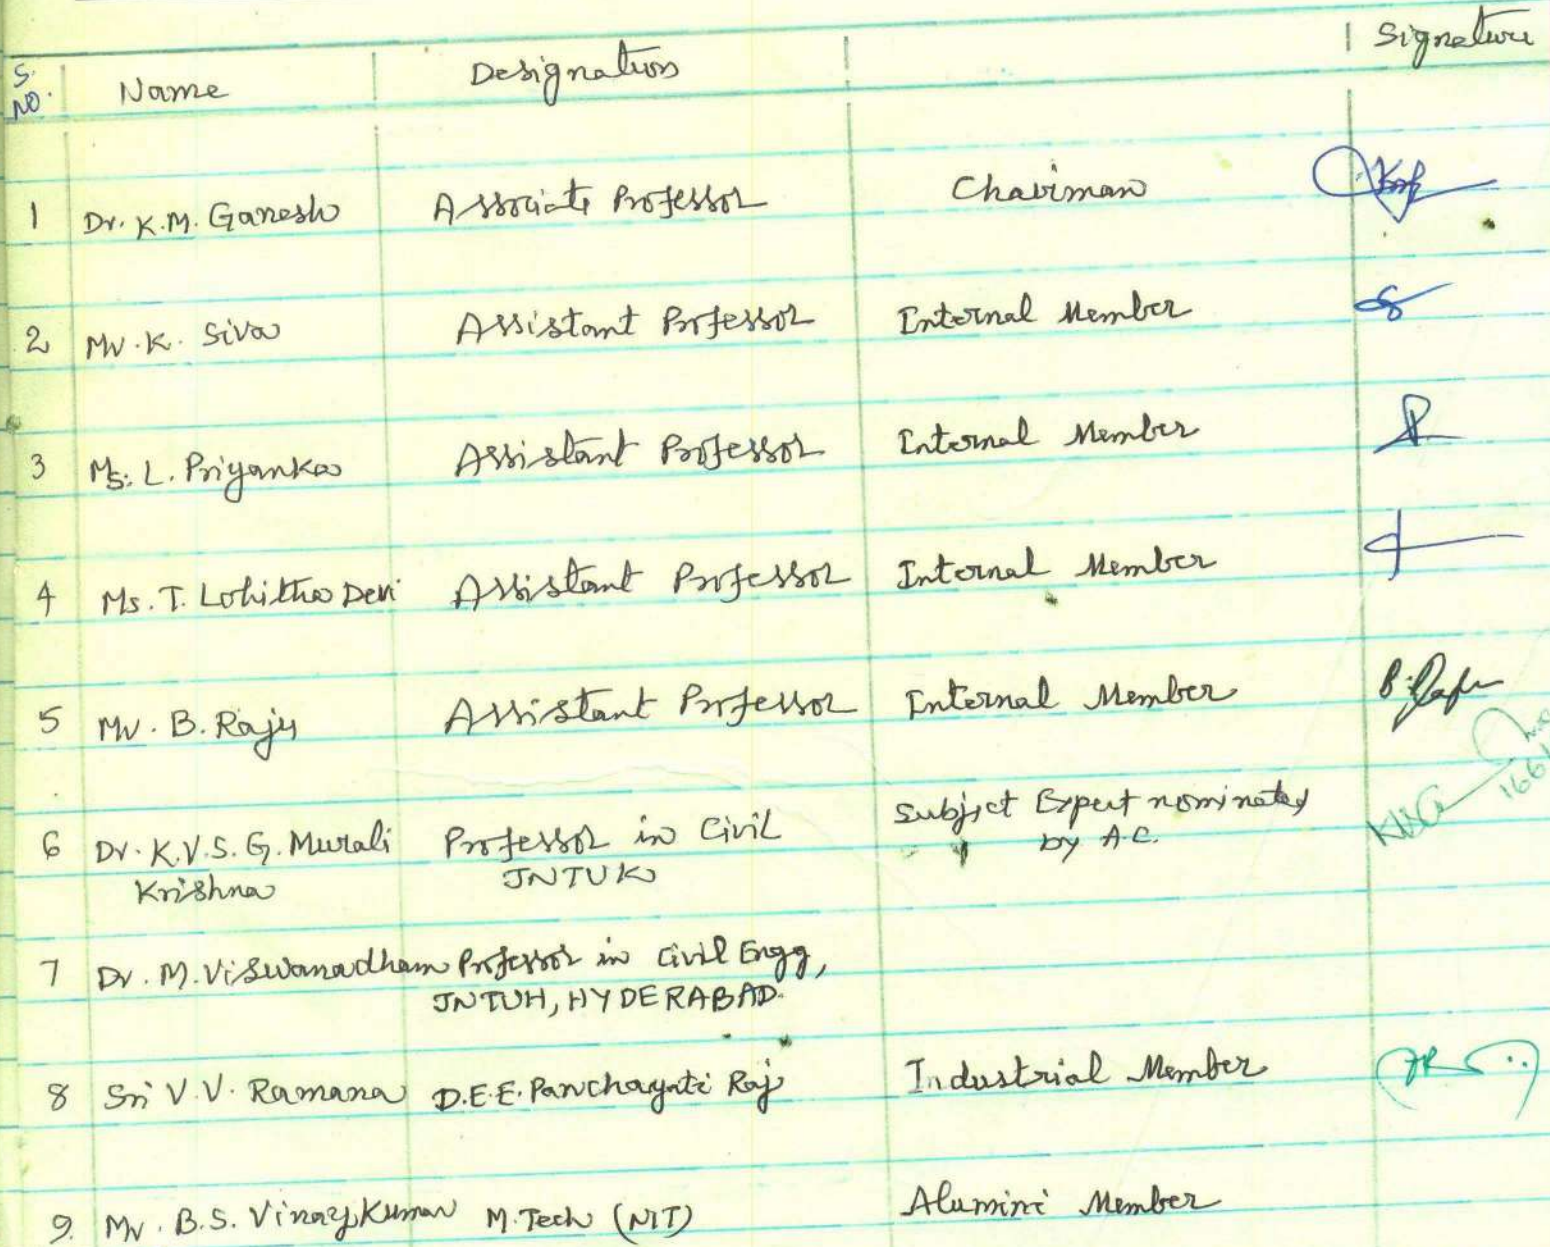 S. NO. Name Designation Signature
1 Dr. K.M. Ganesh Associate Professor Chairman
2 Mr. K. Siva Assistant Professor Internal Member
3 Ms. L. Priyanka Assistant Professor Internal Member
4 Ms. T. Lohitha Devi Assistant Professor Internal Member
5 Mr. B. Raju Assistant Professor Internal Member B. Raju
6 Dr. K.V.S.G. Murali Professor in Civil Subject Expert nominated
Krishna JNTUK by A.C.
7 Dr. M. Viswanadham Professor in Civil Engg,
JNTUH, HYDERABAD.
8 Sri V.V. Ramana D.E.E. Panchayati Raj Industrial Member
9. Mr. B.S. Vinay Kumar M.Tech (NIT) Alumini Member